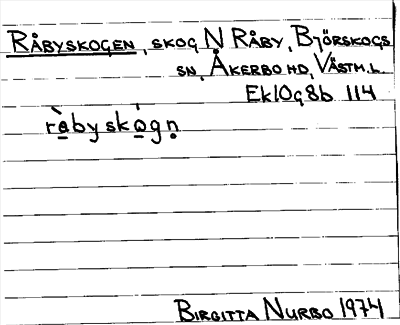 RÅBYSKOGEN, SKOG N RÅBY, BJÖRSKOGS
SN, ÅKERBO HD, VÄSTM.L.
Ek10g8b 114
rå̀byskò̱gṇ
BIRGITTA NURBO 1974